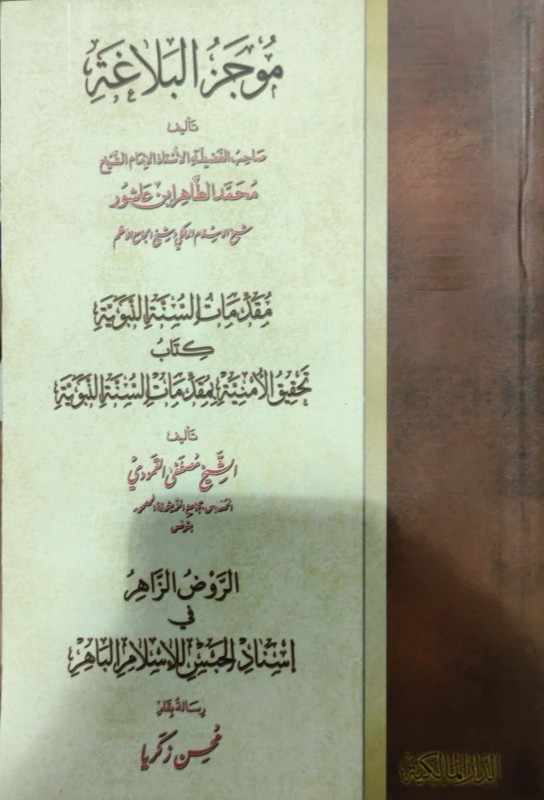 مُوجَزُ البَلَاغَةِ
تأليف
صَاحِبُ الفَضِيلَةِ الأُسْتَاذِ الإِمَامِ الشَّيْخِ
مُحَمَّد الطَّاهِر ابن عَاشُور
شيخ الإسلام المالكي وشيخ الجامع الأعظم
مُقَدِّمَاتُ السُّنَّةِ النَّبَوِيَّةِ
كِتَابُ
تَحْقِيقُ الأُمْنِيَّةِ بِمُقَدِّمَاتِ السُّنَّةِ النَّبَوِيَّةِ
تأليف
الشَّيْخ مُصْطَفَى القَمُودِي
المدرس بجامع الزيتونة المعمور
بتونس
الرَّوْضُ الزَّاهِرُ
في
إِسْنَادِ الحَبْسِ لِلإِسْلَامِ البَاهِرِ
رسالة بقلم
مُحسن زكريا
الدار المالكية